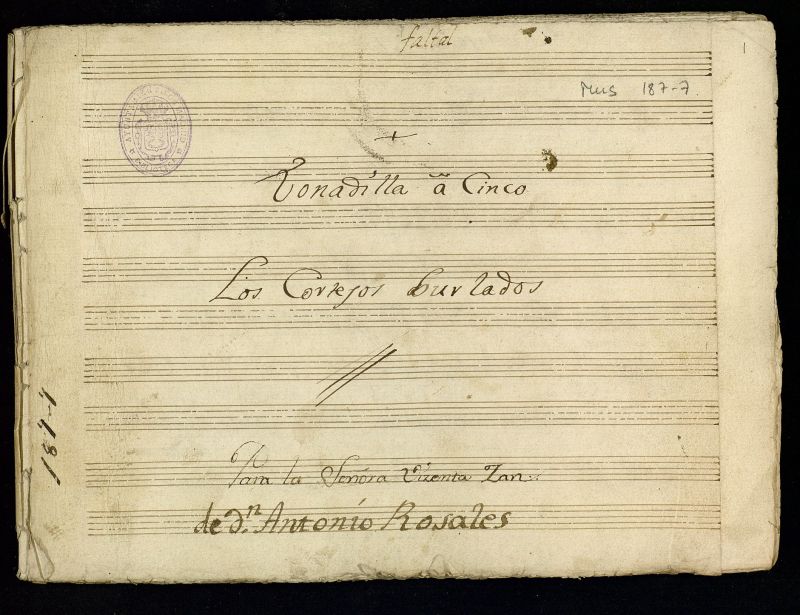 faltal
1
Mus 187-7
+
Tonadilla â Cinco
Los Cortejos burlados
Para la Señora Vizenta Zan:
de d.n Antonio Rosales
187-7